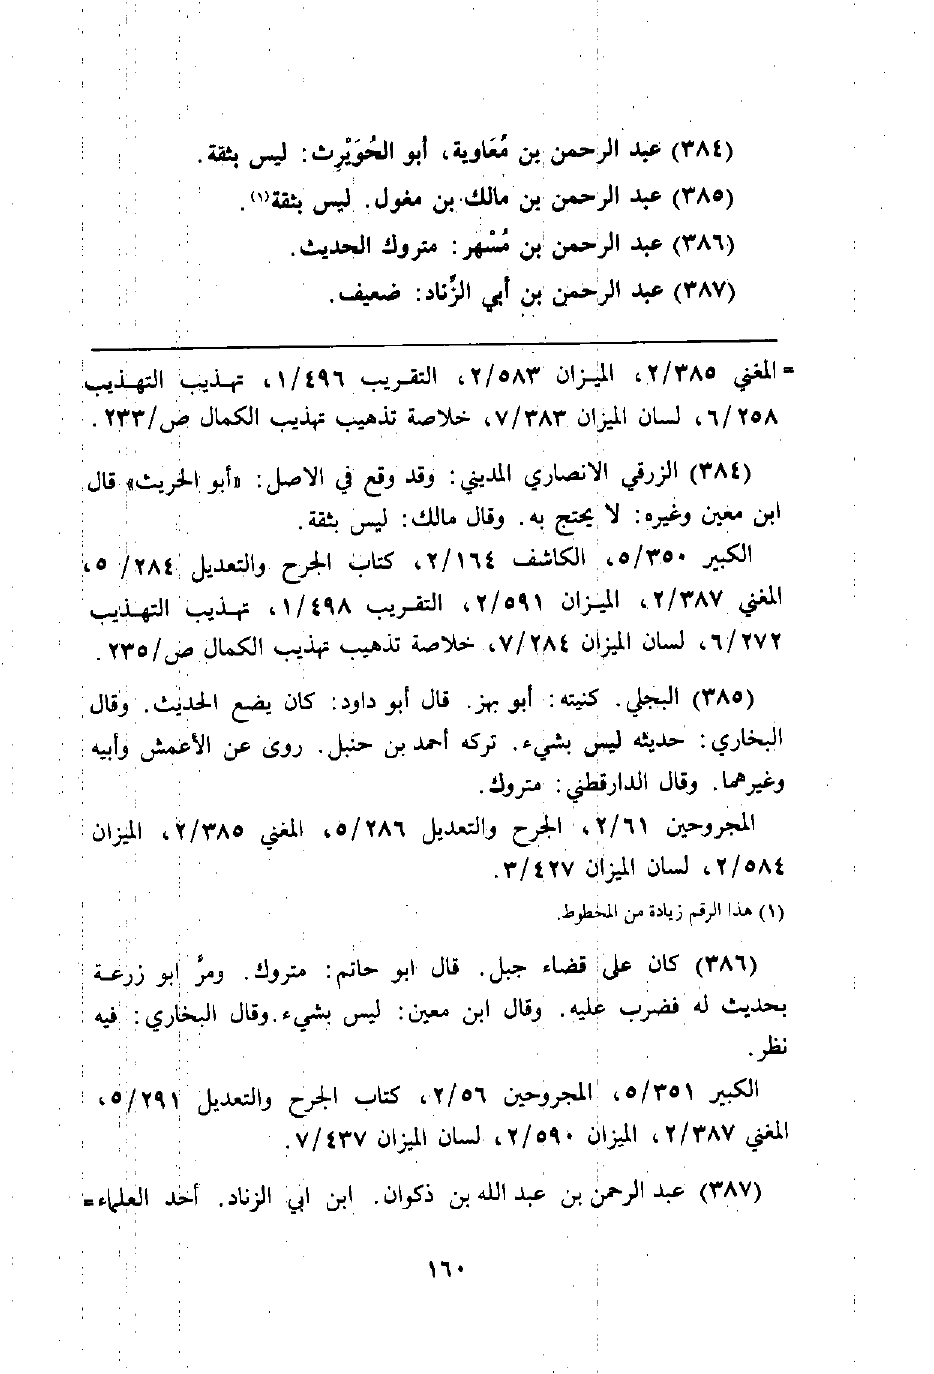 (٣٨٤) عبد الرحمن بن مُعَاوية، أبو الحُوَيْرِث: ليس بثقة.
(٣٨٥) عبد الرحمن بن مالك بن مغول. ليس بثقة(١).
(٣٨٦) عبد الرحمن بن مُسْهر: متروك الحديث.
(٣٨٧) عبد الرحمن بن أبي الزِّناد: ضعيف.
= المغني ٢/٣٨٥، الميزان ٢/٥٨٣، التقريب ١/٤٩٦، تهذيب التهذيب
٦/٢٥٨، لسان الميزان ٧/٣٨٣، خلاصة تذهيب تهذيب الكمال ص/٢٣٣.
(٣٨٤) الزرقي الانصاري المديني: وقد وقع في الاصل: «أبو الحريث» قال
ابن معين وغيره: لا يحتج به. وقال مالك: ليس بثقة.
الكبير ٥/٣٥٠، الكاشف ٢/١٦٤، كتاب الجرح والتعديل ٥/٢٨٤،
المغني ٢/٣٨٧، الميزان ٢/٥٩١، التقريب ١/٤٩٨، تهذيب التهذيب
٦/٢٧٢، لسان الميزان ٧/٢٨٤، خلاصة تذهيب تهذيب الكمال ص/٢٣٥.
(٣٨٥) البجلي. كنيته: أبو بهز. قال أبو داود: كان يضع الحديث. وقال
البخاري: حديثه ليس بشيء. تركه أحمد بن حنبل. روى عن الأعمش وأبيه
وغيرهما. وقال الدارقطني: متروك.
المجروحين ٢/٦١، الجرح والتعديل ٥/٢٨٦، المغني ٢/٣٨٥، الميزان
٢/٥٨٤، لسان الميزان ٣/٤٢٧.
(١) هذا الرقم زيادة من المخطوط.
(٣٨٦) كان على قضاء جبل. قال ابو حاتم: متروك. ومرَّ ابو زرعة
بحديث له فضرب عليه. وقال ابن معين: ليس بشيء.وقال البخاري: فيه
نظر.
الكبير ٥/٣٥١، المجروحين ٢/٥٦، كتاب الجرح والتعديل ٥/٢٩١،
المغني ٢/٣٨٧، الميزان ٢/٥٩٠، لسان الميزان ٧/٤٣٧.
(٣٨٧) عبد الرحمن بن عبد الله بن ذكوان. ابن ابي الزناد. أحد العلماء=
١٦٠